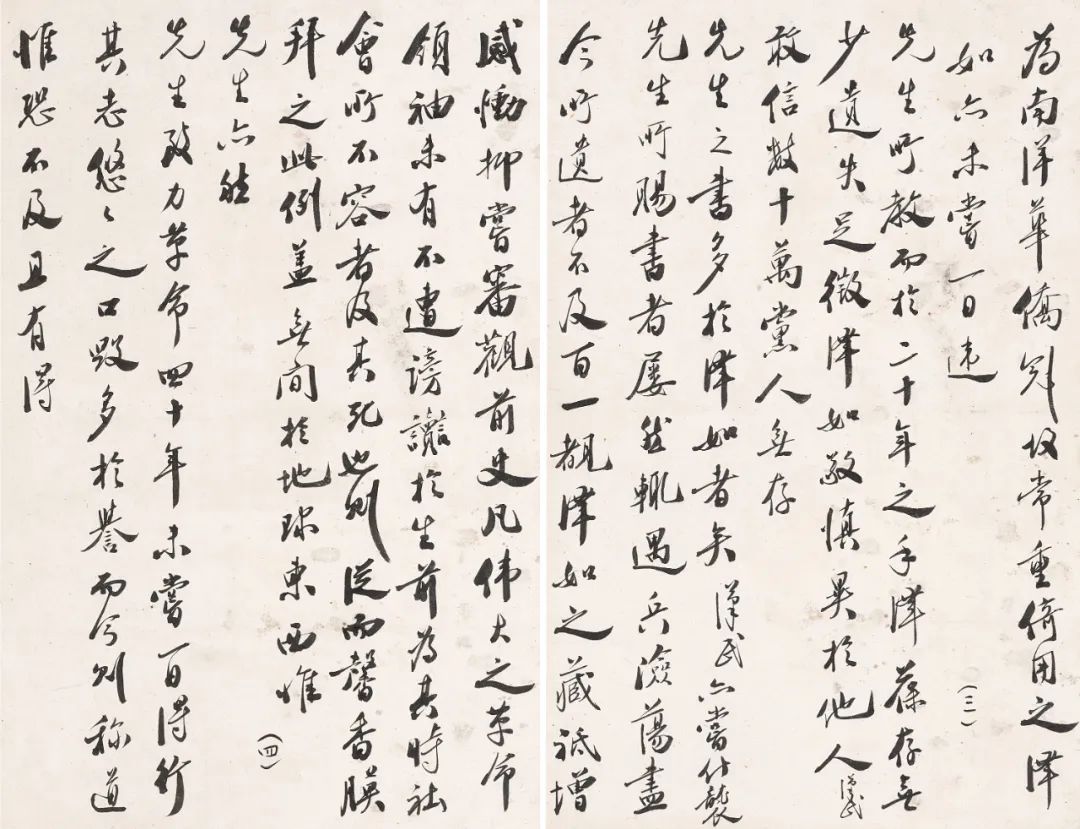 為南洋華僑則故常重倚用之澤
如亦未嘗一日違
先生所教而於二十年之手澤葆存無
少遺失足徵澤如敬慎異於他人漢民
敢信數十萬黨人無存
先生之書多於澤如者矣漢民亦嘗什襲
先生所賜書者屢然輒遇兵燹蕩盡
今所遺者不及百一覩澤如之藏祗增
(三)
感慟抑嘗審觀前史凡偉大之革命
領袖未有不遭謗讟於生前為其時社
會所不容者及其死也則從而馨香膜
拜之此例蓋無間於地球東西惟
先生亦然
先生致力革命四十年未嘗一日得行
其志悠々之口毀多於譽而今則稱道
惟恐不及且有得
(四)